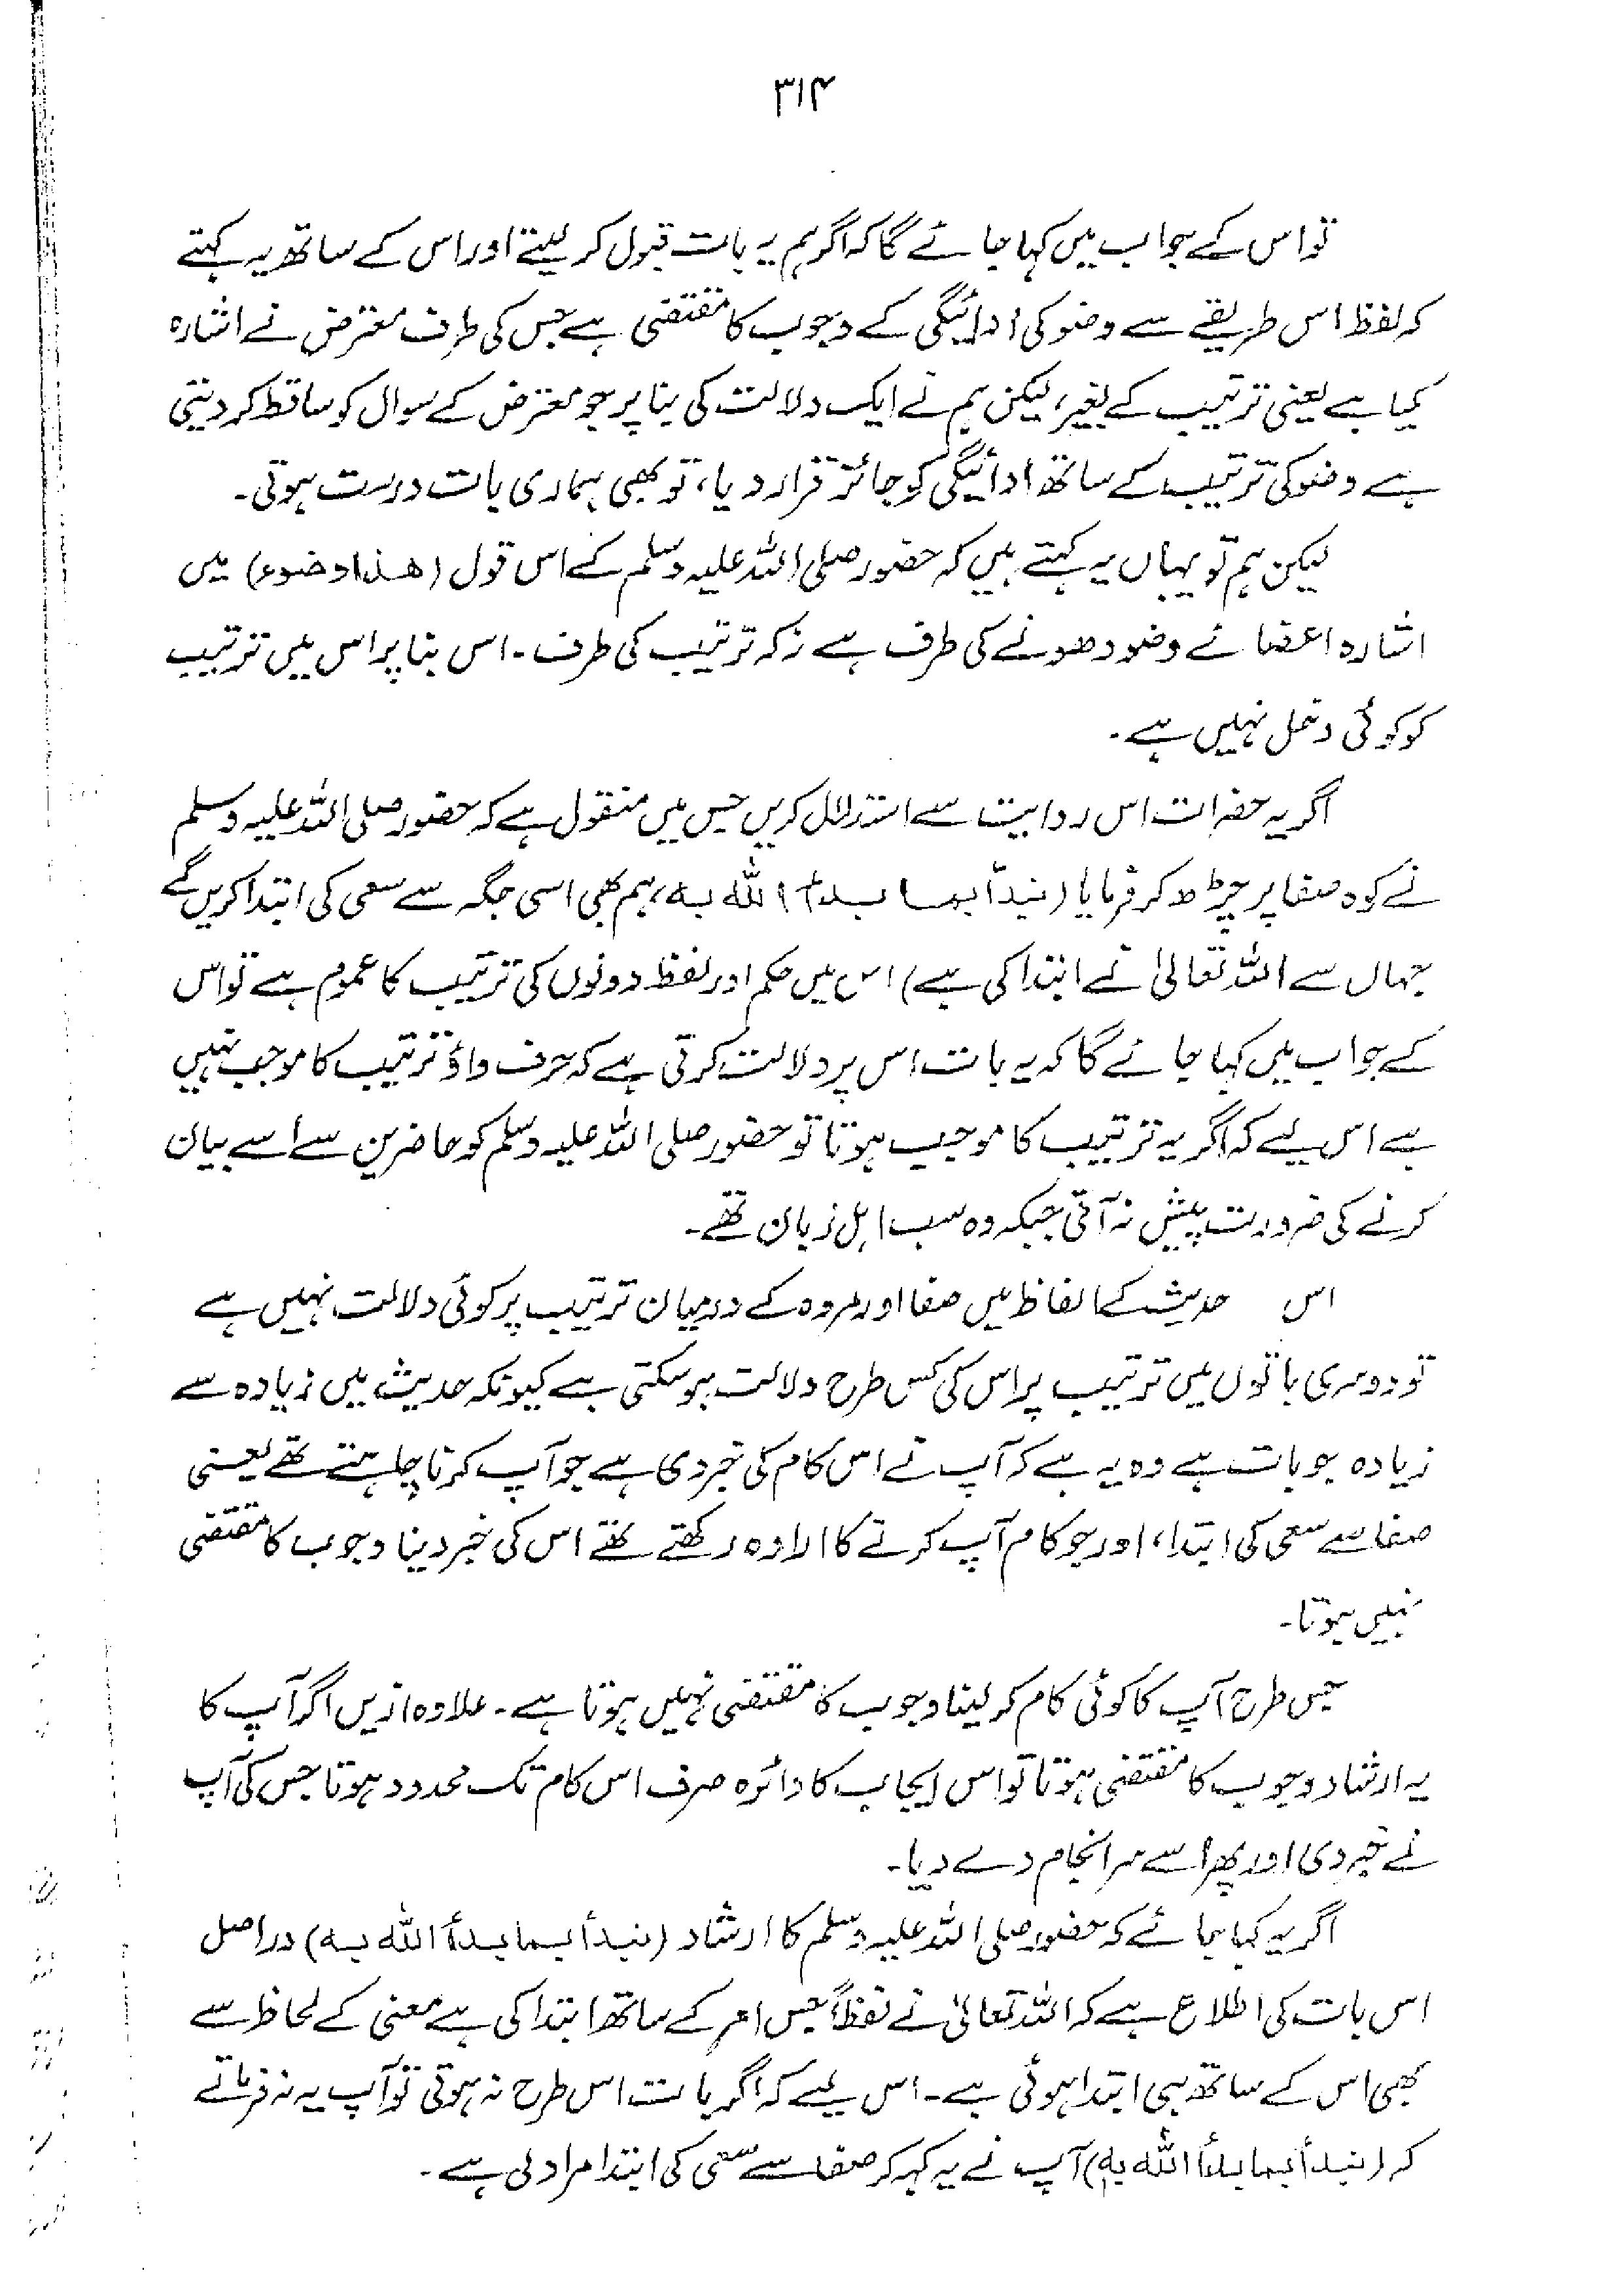 ۳۱۴
تو اس کے جواب میں کہا جائے گا کہ اگر ہم یہ بات قبول کر لیتے اور اس کے ساتھ یہ کہتے
کہ لفظ اس طریقے سے وضو کی ادائیگی کے وجوب کا مقتضی ہے جس کی طرف معترض نے اشارہ
کیا ہے یعنی ترتیب کے بغیر، لیکن ہم نے ایک دلالت کی بنا پر جو معترض کے سوال کو ساقط کر دیتی
ہے وضو کی ترتیب کے ساتھ ادائیگی کو جائز قرار دیا، تو بھی ہماری بات درست ہوتی۔
لیکن ہم تو یہاں یہ کہتے ہیں کہ حضور صلی اللہ علیہ وسلم کے اس قول (ھذا وضوء) میں
اشارہ اعضائے وضو دھونے کی طرف ہے نہ کہ ترتیب کی طرف۔ اس بنا پر اس میں ترتیب
کو کوئی دخل نہیں ہے۔
اگر یہ حضرات اس روایت سے استدلال کریں جس میں منقول ہے کہ حضور صلی اللہ علیہ وسلم
نے کوہ صفا پر چڑھ کر فرمایا (نبدأ بما بدأ اللہ بہ، ہم بھی اسی جگہ سے سعی کی ابتدا کریں گے
جہاں سے اللہ تعالیٰ نے ابتدا کی ہے) اس میں حکم اور لفظ دونوں کی ترتیب کا عموم ہے تو اس
کے جواب میں کہا جائے گا کہ یہ بات اس پر دلالت کرتی ہے کہ حرف واؤ ترتیب کا موجب نہیں
ہے اس لیے کہ اگر یہ ترتیب کا موجب ہوتا تو حضور صلی اللہ علیہ وسلم کو حاضرین سے اسے بیان
کرنے کی ضرورت پیش نہ آتی جبکہ وہ سب اہل زبان تھے۔
اس حدیث کے الفاظ میں صفا اور مروہ کے درمیان ترتیب پر کوئی دلالت نہیں ہے
تو دوسری باتوں میں ترتیب پر اس کی کس طرح دلالت ہو سکتی ہے کیونکہ حدیث میں زیادہ سے
زیادہ جو بات ہے وہ یہ ہے کہ آپ نے اس کام کی خبر دی ہے جو آپ کرنا چاہتے تھے یعنی
صفا سے سعی کی ابتدا، اور جو کام آپ کرنے کا ارادہ رکھتے تھے اس کی خبر دینا وجوب کا مقتضی
نہیں ہوتا۔
جس طرح آپ کا کوئی کام کر لینا وجوب کا مقتضی نہیں ہوتا ہے۔ علاوہ ازیں اگر آپ کا
یہ ارشاد وجوب کا مقتضی ہوتا تو اس ایجاب کا دائرہ صرف اس کام تک محدود ہوتا جس کی آپ
نے خبر دی اور پھر اسے سرانجام دے دیا۔
اگر یہ کہا جائے کہ حضور صلی اللہ علیہ وسلم کا ارشاد (نبدأ بما بدأ اللہ بہ) دراصل
اس بات کی اطلاع ہے کہ اللہ تعالیٰ نے لفظاً جس امر کے ساتھ ابتدا کی ہے معنی کے لحاظ سے
بھی اس کے ساتھ ہی ابتدا ہوئی ہے۔ اس لیے کہ اگر بات اس طرح نہ ہوتی تو آپ یہ نہ فرماتے
کہ (نبدأ بما بدأ اللہ بہ) آپ نے یہ کہہ کر صفا سے سعی کی ابتدا مراد لی ہے۔